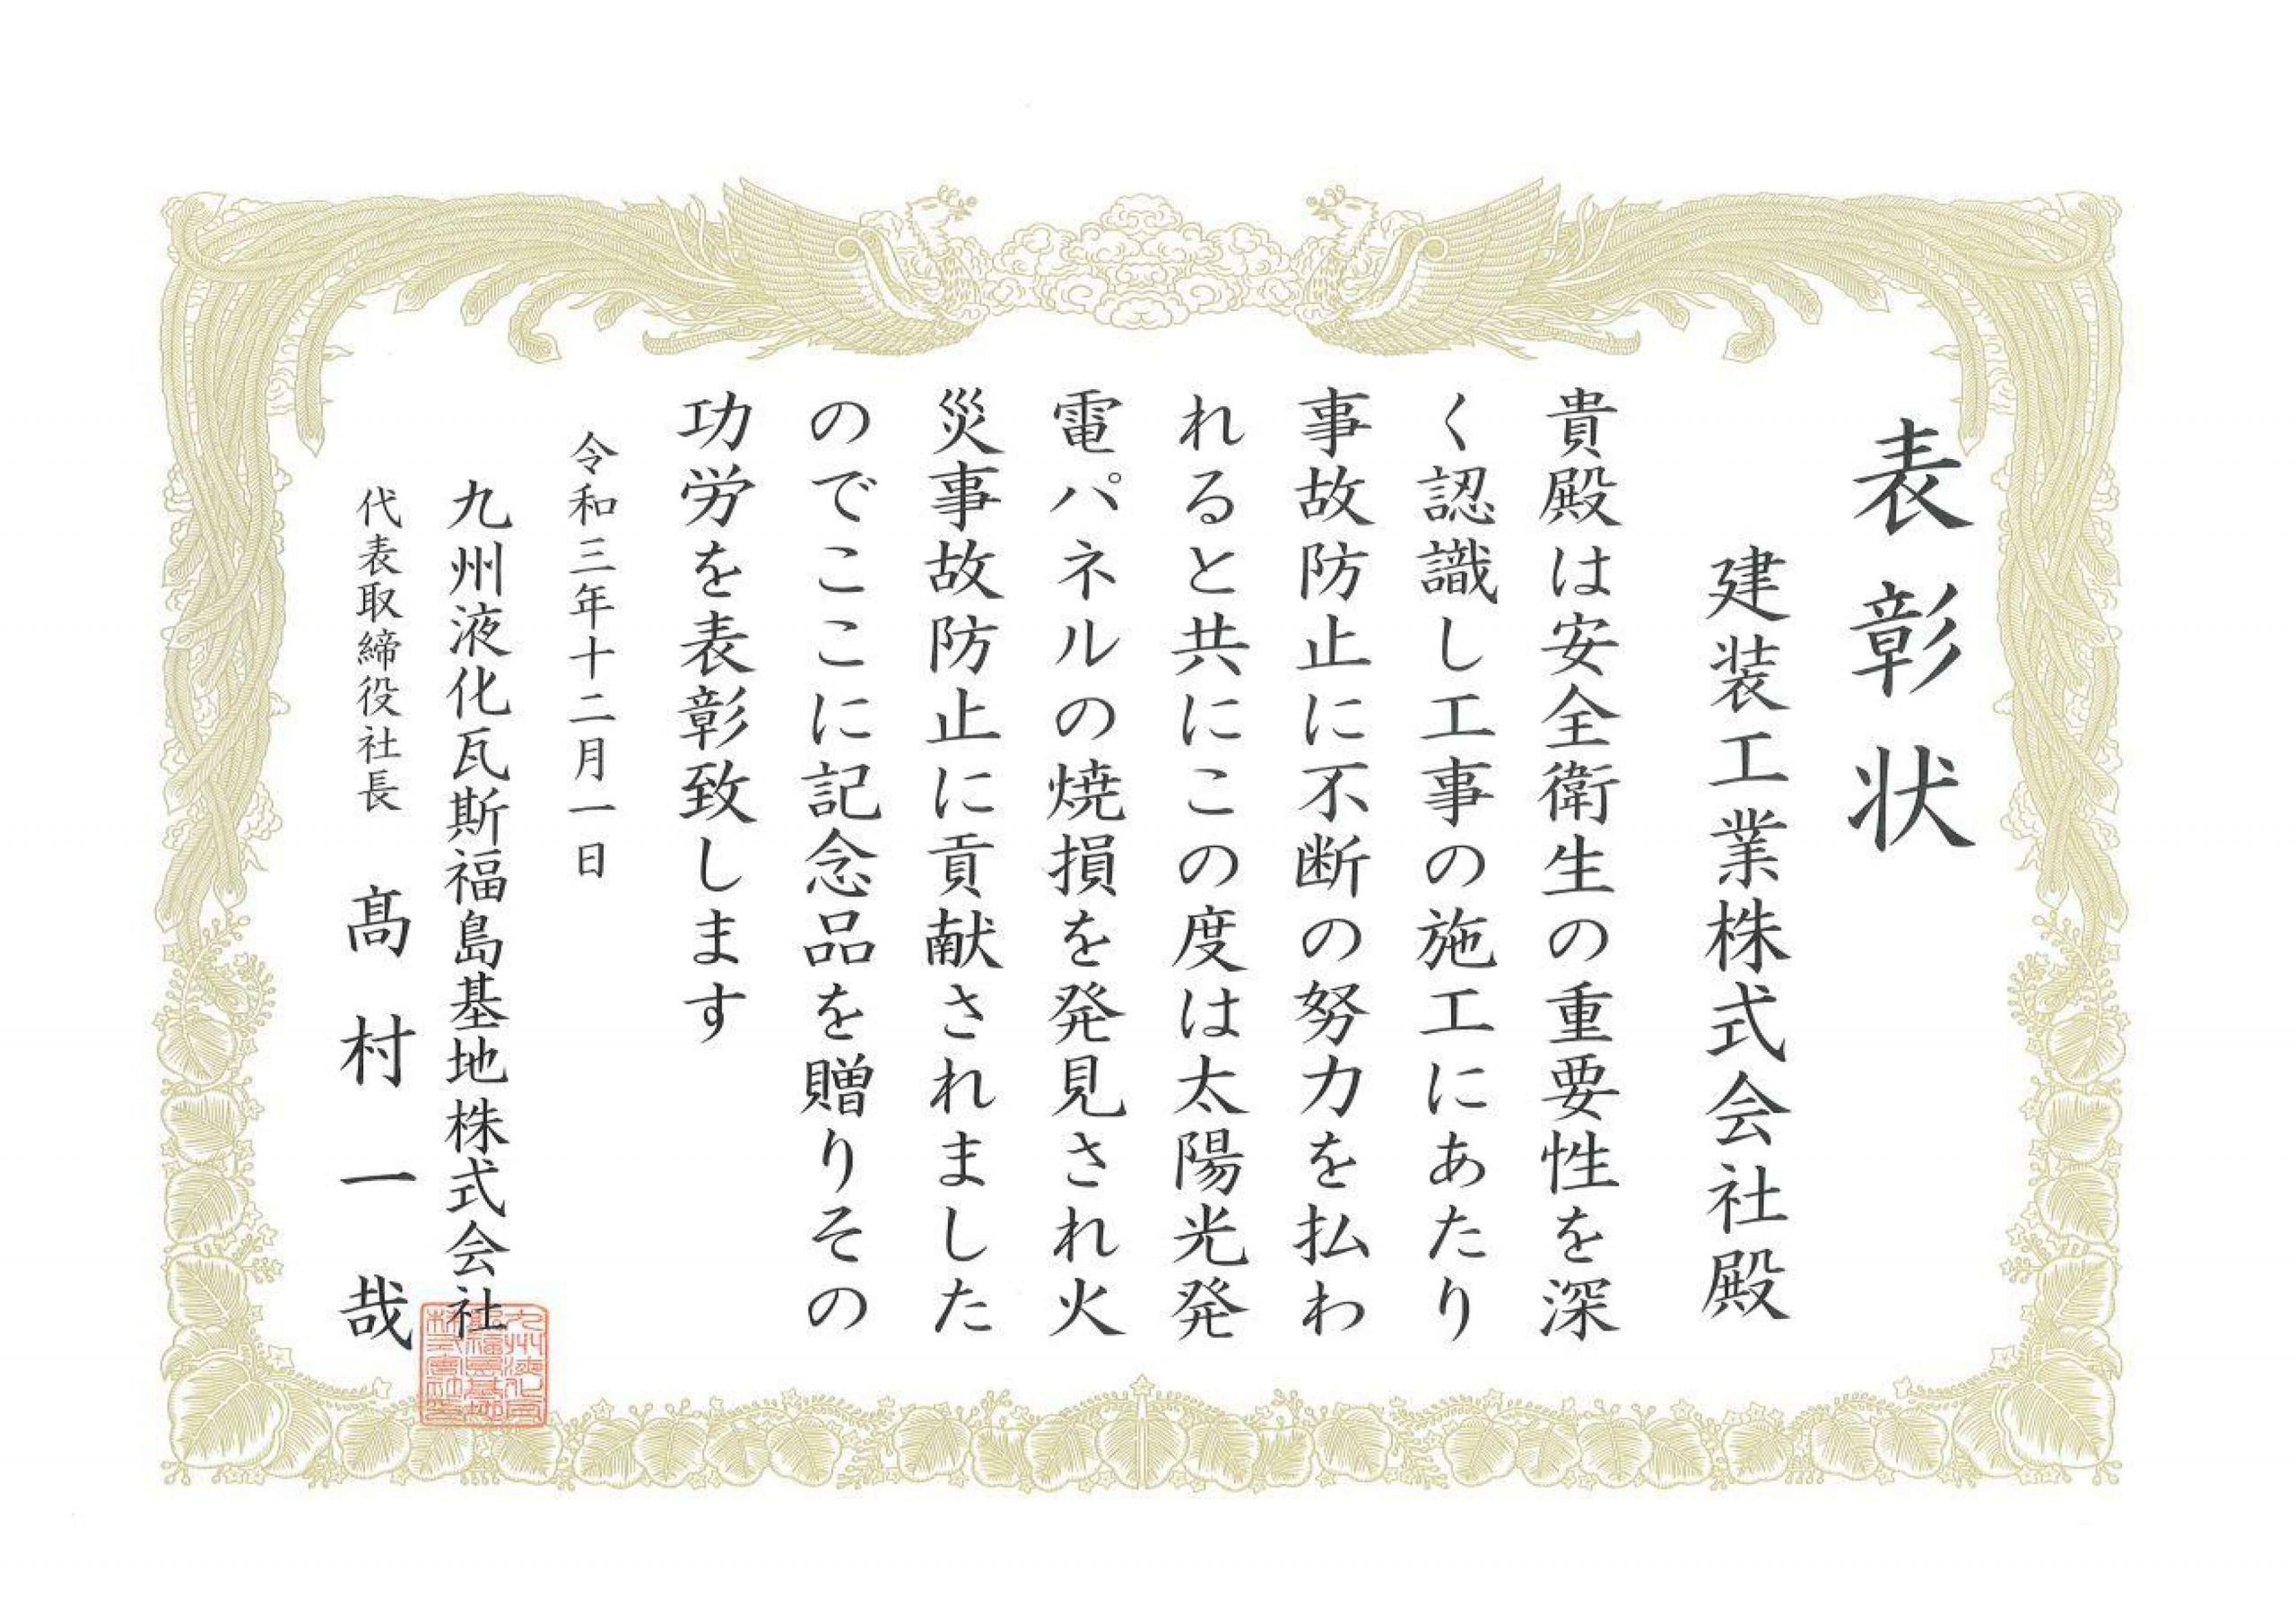 表彰状
建装工業株式会社殿
貴殿は安全衛生の重要性を深
く認識し工事の施工にあたり
事故防止に不断の努力を払わ
れると共にこの度は太陽光発
電パネルの焼損を発見され火
災事故防止に貢献されました
のでここに記念品を贈りその
功労を表彰致します
令和三年十二月一日
九州液化瓦斯福島基地株式会社
代表取締役社長 髙村一哉